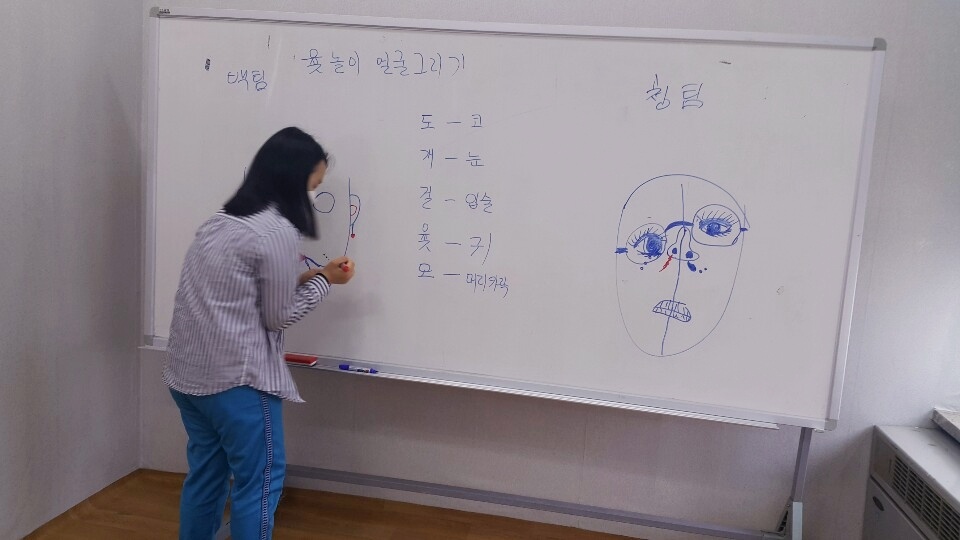 윷놀이 얼굴그리기
백팀
청팀
도 – 코
개 – 눈
걸 – 입술
윷 – 귀
모 – 머리카락